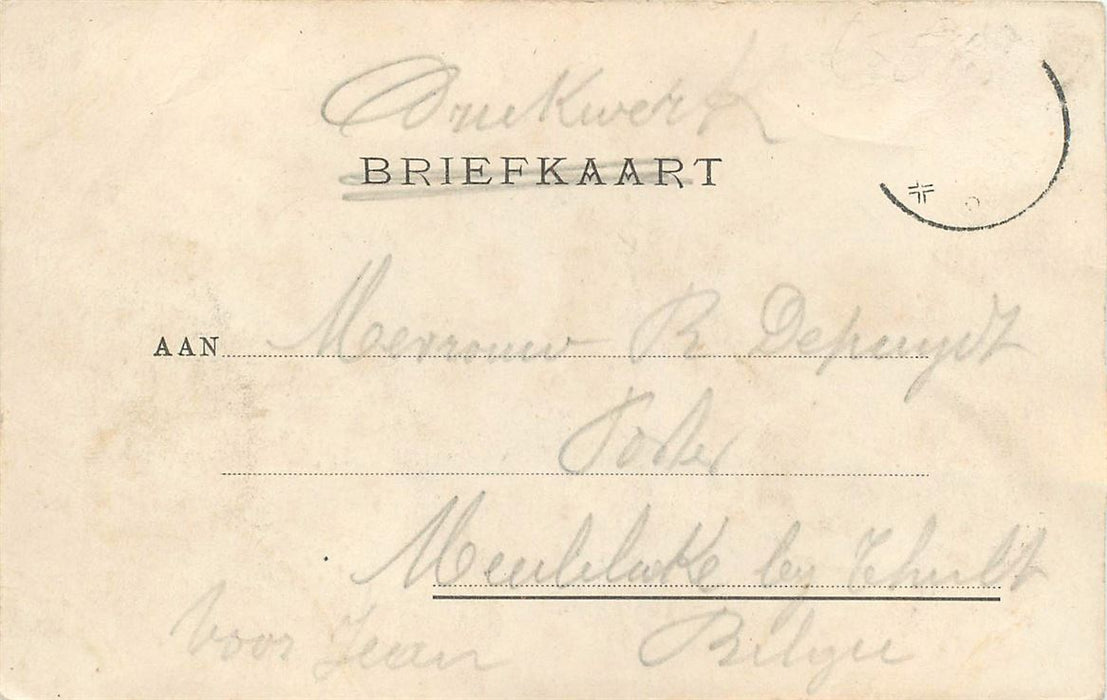 Drukwerk
BRIEFKAART
AAN Mevrouw R Depuydt
Meulebeke by Thielt
Voor Jean Belgie